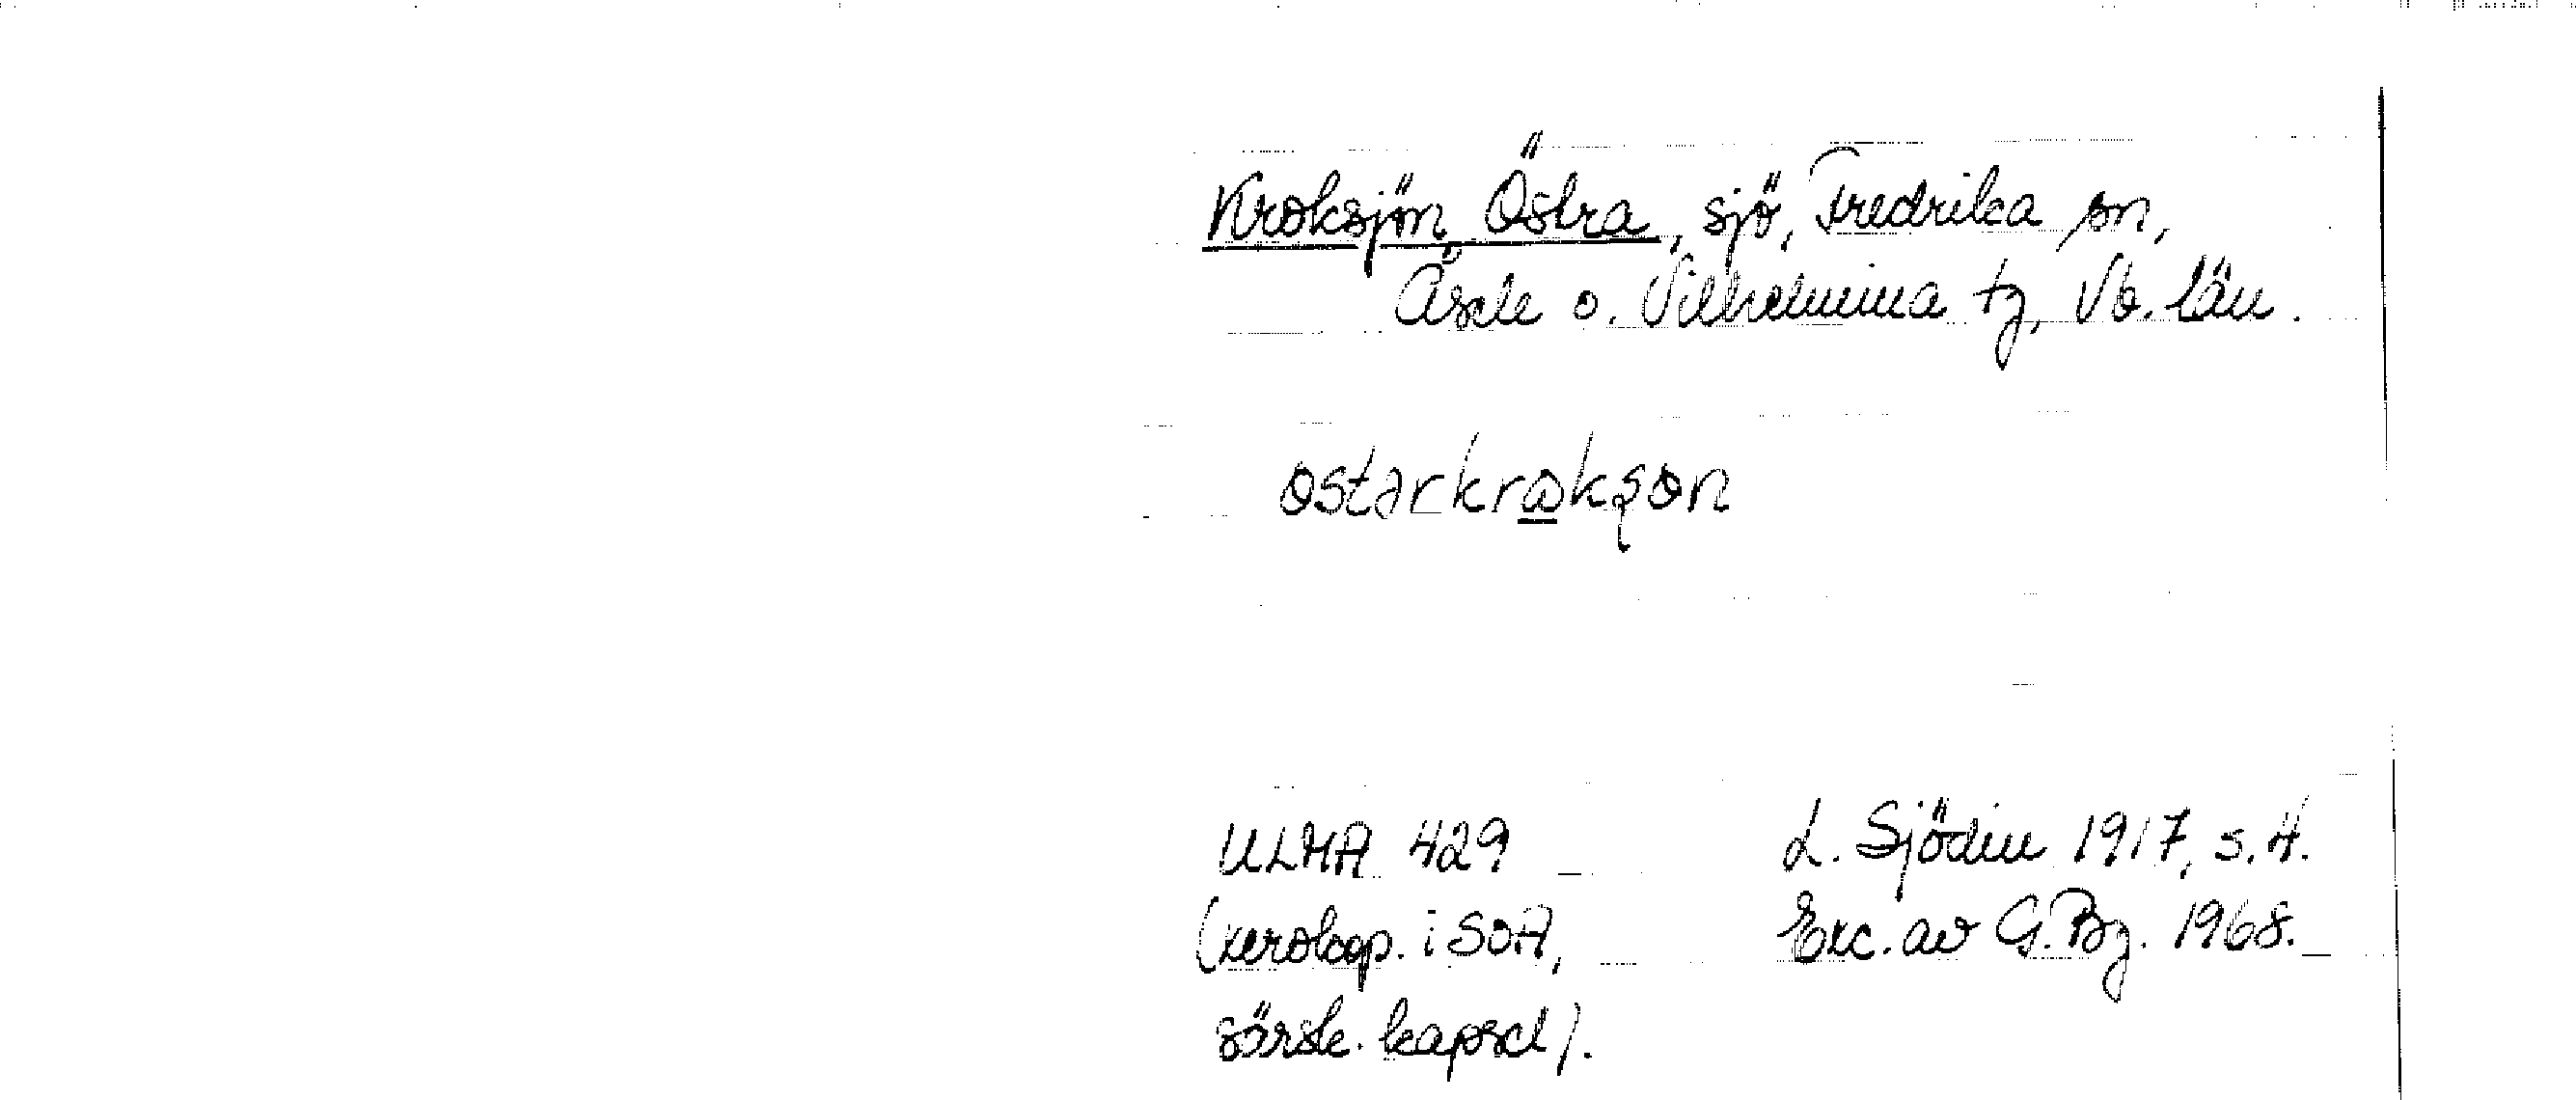 Kroksjön, Östra, sjö, Fredrika sn,
Åsele o. Vilhelmina tg, Vb. län.
ostərkrokșon
ULMA 429
(xerokop. i SOA,
särsk. kapsel).
L. Sjödin 1917, s. 4.
Exc. av G. Bg. 1968.